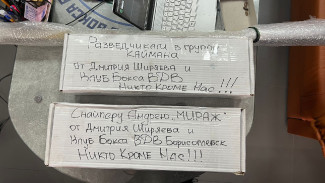 Разведчикам в группу
Каймана
от Дмитрия Ширяева и
Клуб Бокса ВДВ
Никто Кроме Нас!!!
Снайперу Андрею "МИРАЖ"
от Дмитрия Ширяева и
Клуб Бокса ВДВ Борисоглебск
Никто Кроме Нас!!!